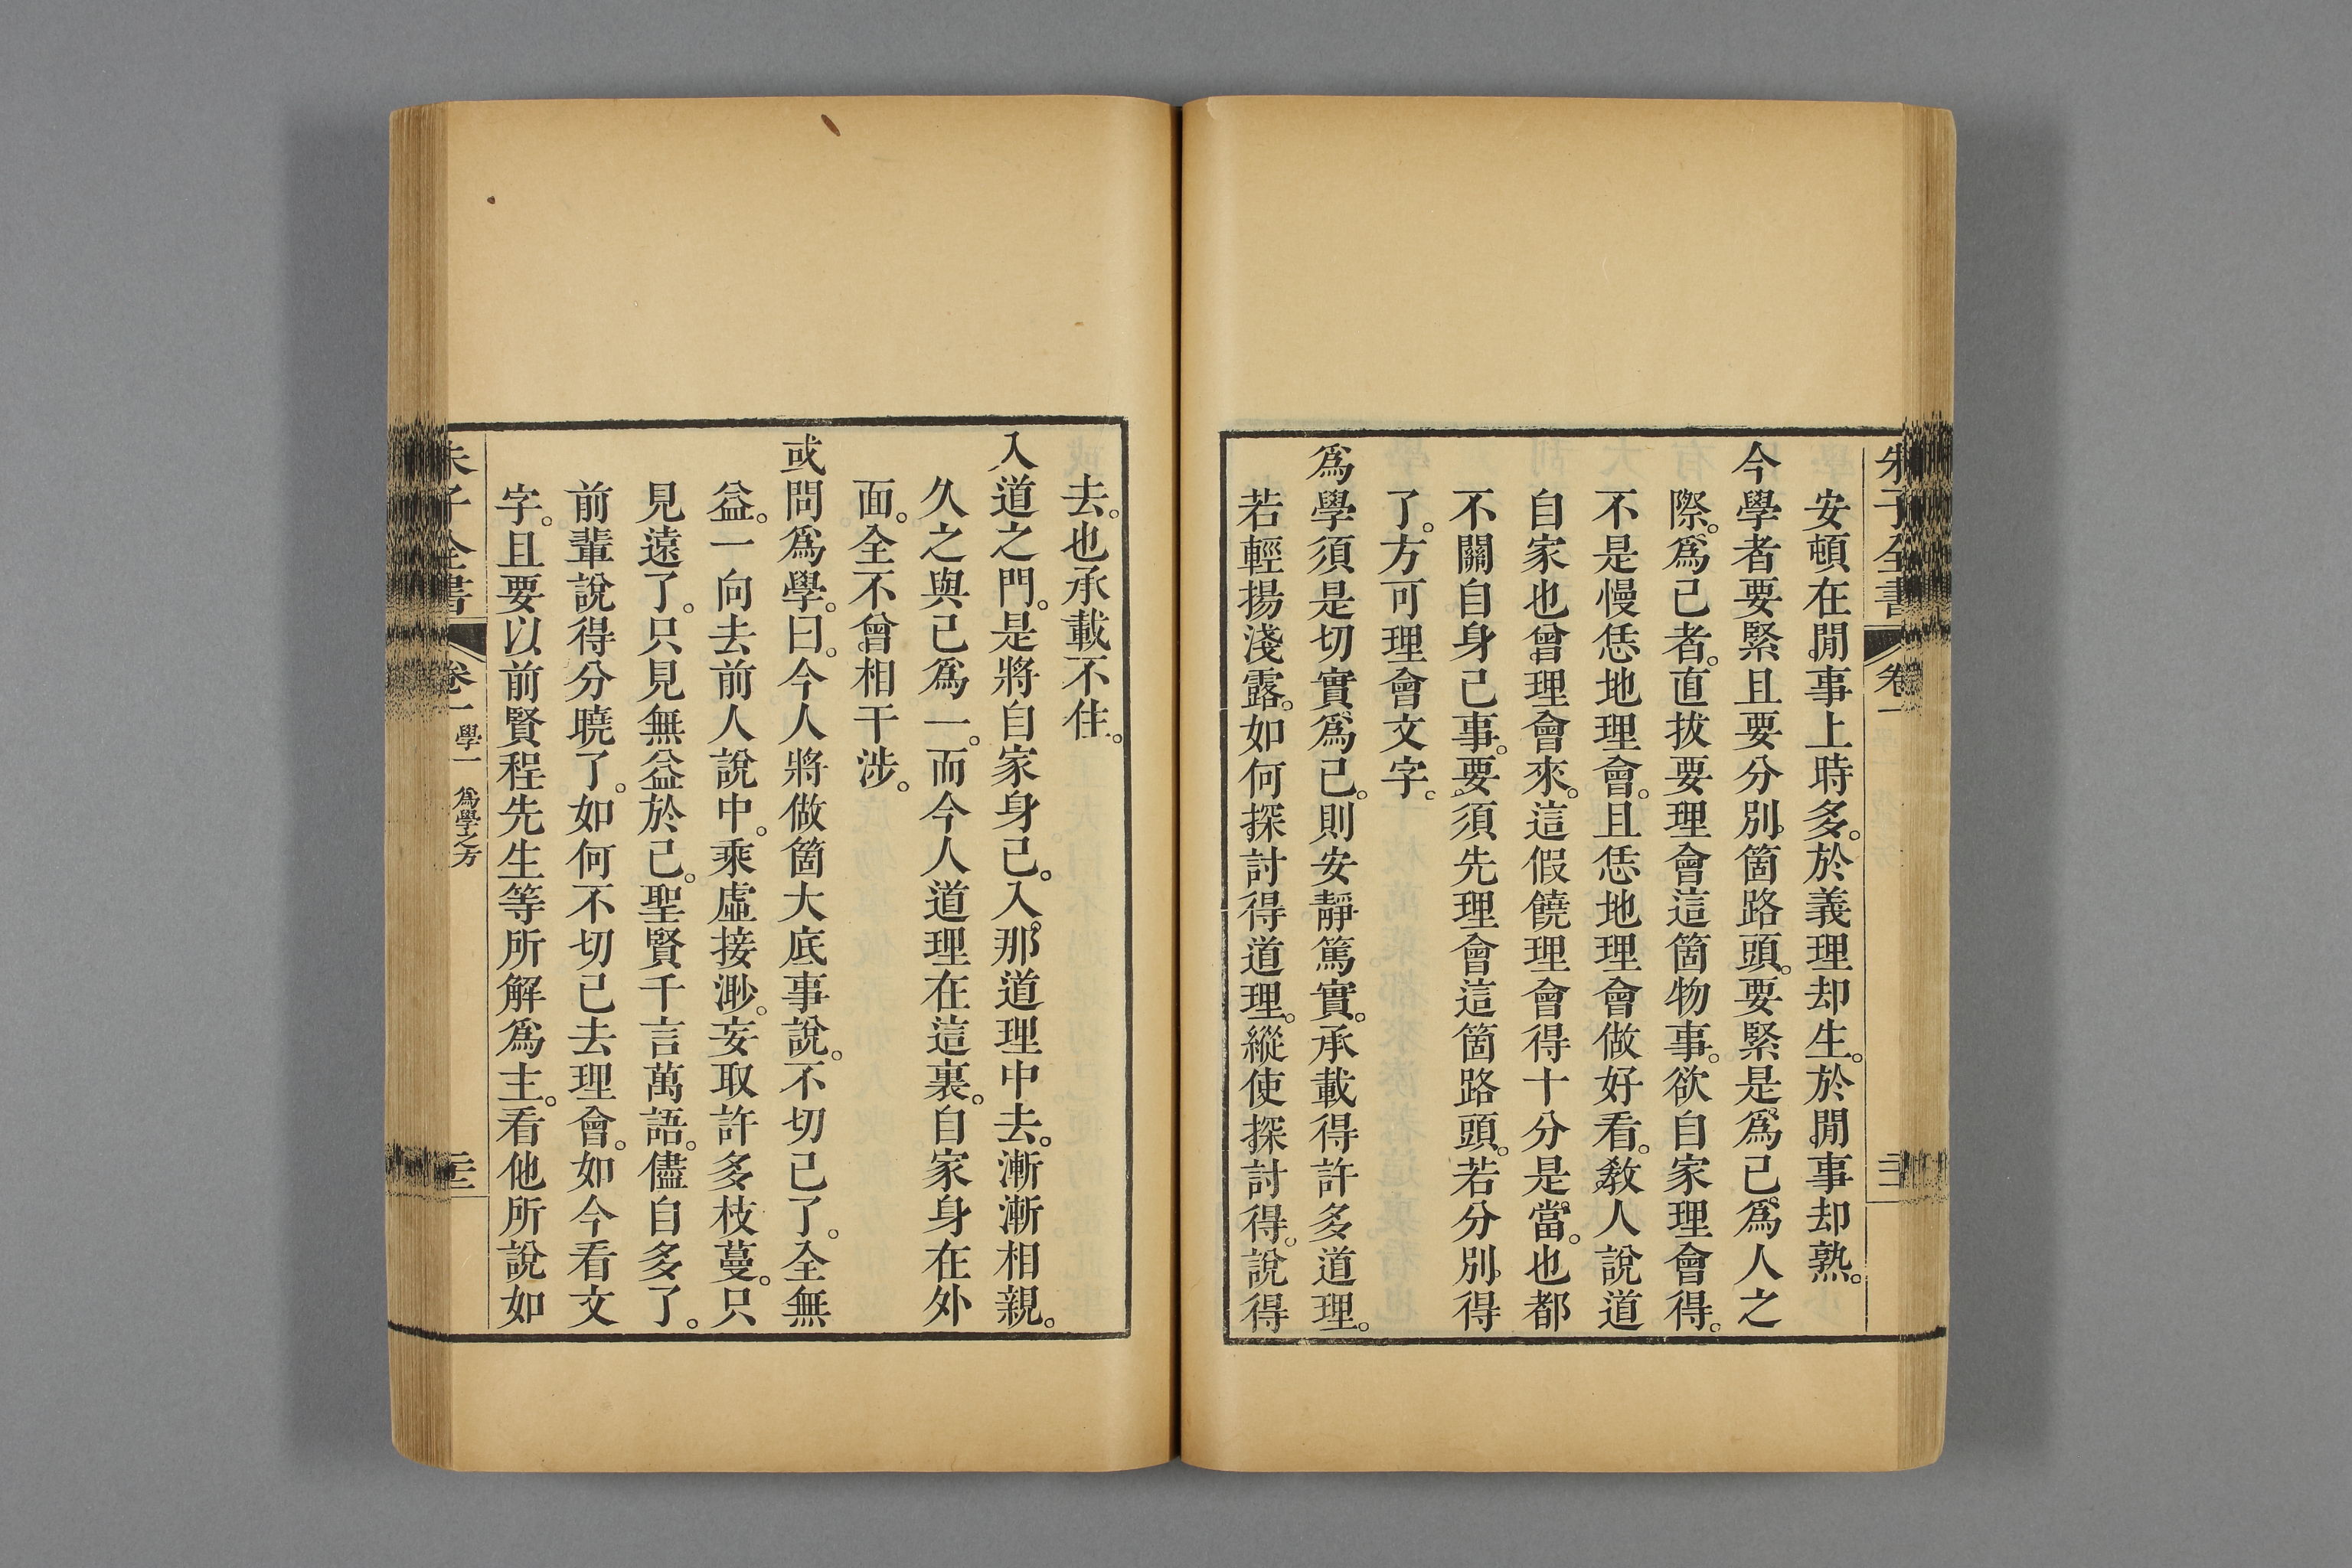 朱子全書 卷一
安頓在閒事上時多。於義理却生。於閒事却熟。
今學者要緊且要分別箇路頭。要緊是爲己爲人之
際。爲己者。直拔要理會這箇物事。欲自家理會得。
不是慢恁地理會。且恁地理會做好看。教人說道
自家也曾理會來。這假饒理會得十分是當。也都
不關自身己事。要須先理會這箇路頭。若分別得
了。方可理會文字。
爲學須是切實爲己。則安靜篤實。承載得許多道理。
若輕揚淺露。如何探討得道理。縱使探討得。說得
去。也承載不住。
入道之門。是將自家身己。入那道理中去。漸漸相親。
久之與己爲一。而今人道理在這裏。自家身在外
面。全不曾相干涉。
或問爲學。曰。今人將做箇大底事說。不切己了。全無
益。一向去前人說中。乘虛接渺。妄取許多枝蔓。只
見遠了。只見無益於己。聖賢千言萬語。儘自多了。
前輩說得分曉了。如何不切己去理會。如今看文
字。且要以前賢程先生等所解爲主。看他所說如
朱子全書 卷一 學一 爲學之方